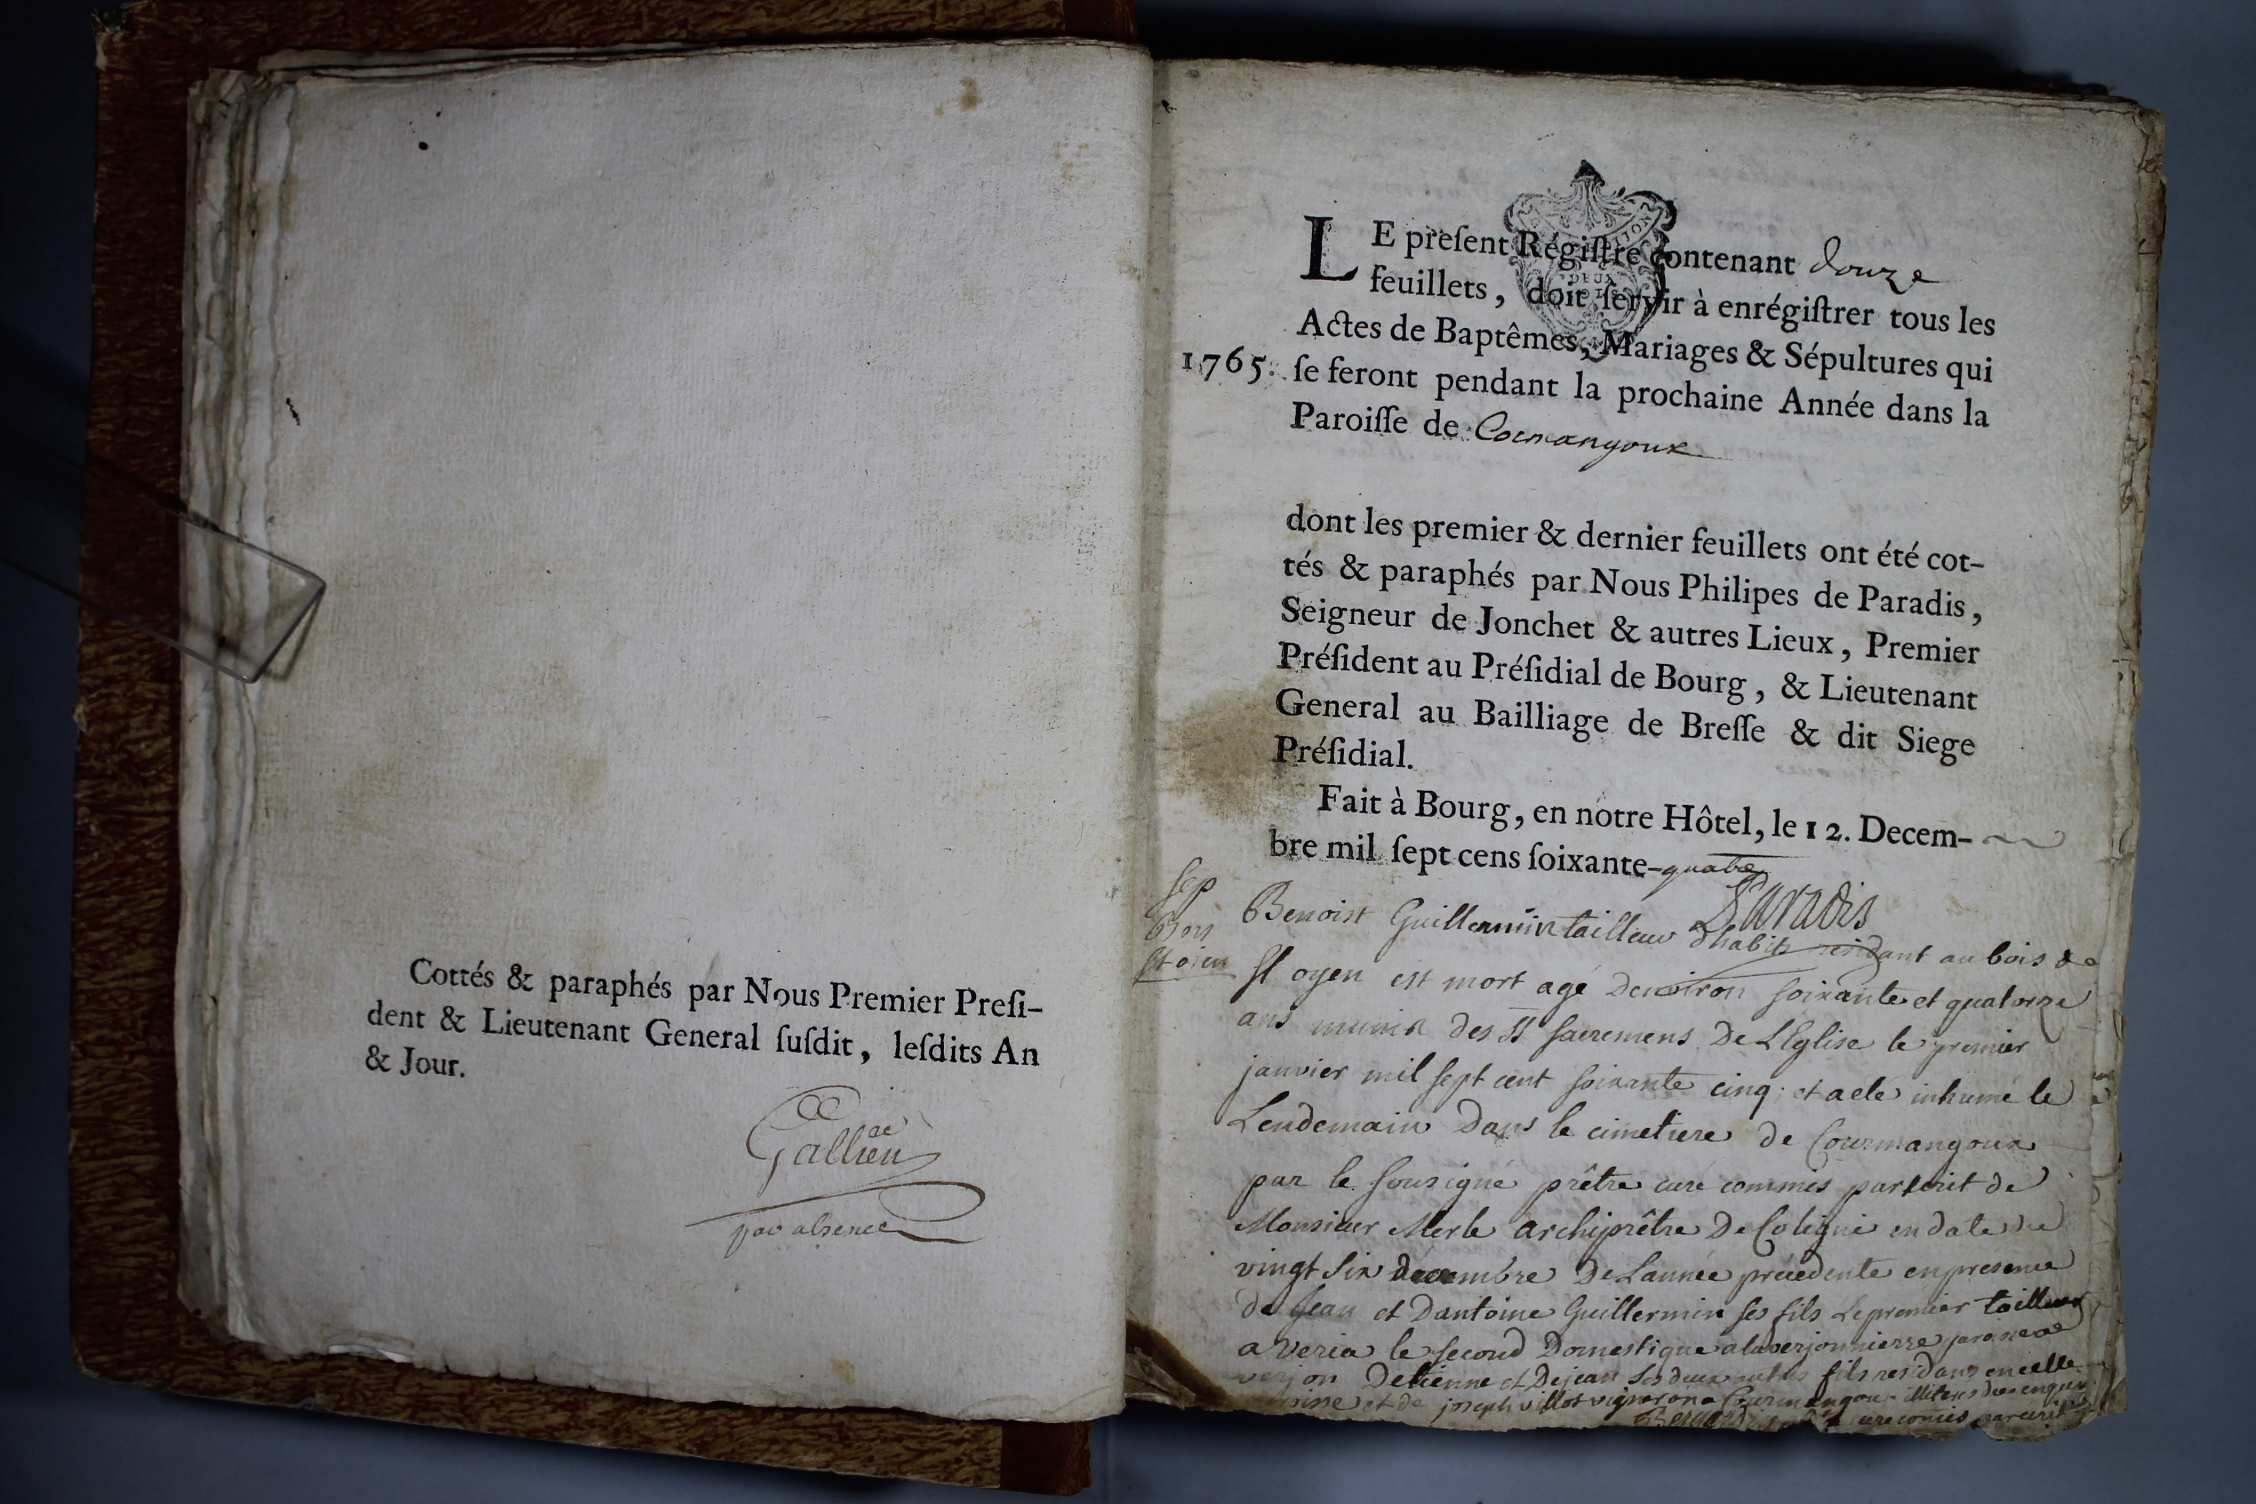 Cottés & paraphés par Nous Premier Presi-
dent & Lieutenant General susdit, lesdits An
& Jour.
Gallien
par absence
LE present Régistre contenant douze
feuillets, doit servir à enrégistrer tous les
Actes de Baptêmes, Mariages & Sépultures qui
1765. se feront pendant la prochaine Année dans la
Paroisse de Cormangoux
DEUX
dont les premier & dernier feuillets ont été cot-
tés & paraphés par Nous Philipes de Paradis,
Seigneur de Jonchet & autres Lieux, Premier
Président au Présidial de Bourg, & Lieutenant
General au Bailliage de Bresse & dit Siege
Présidial.
Fait à Bourg, en notre Hôtel, le 12. Decem-
bre mil sept cens soixante-quatre
Paradis
sep
Bois
St oien
Benoist Guillermin tailleur dhabits residant au bois de
St oyen est mort agé denviron soixante et quatorze
ans munis des SS sacremens De LEglise le premier
janvier mil sept cent soixante cinq; et a eté inhumé le
Lendemain Dans le cimetiere de Courmangoux
par le sousigné prêtre curé commis par ecrit de
Monsieur Merle archiprêtre De Coligni en date du
vingt six decembre De Lannée précedente en presence
de Jean et Dantoine Guillermin ses fils Le premier tailleur
a veria le second Domestique a la verjonnierre paroisse de
verjon Detienne et Dejean ses deux autres fils residans en celle
paroisse et de joseph villot vigneron a Courmangoux illiteres de enquis
curé comis par ecrit